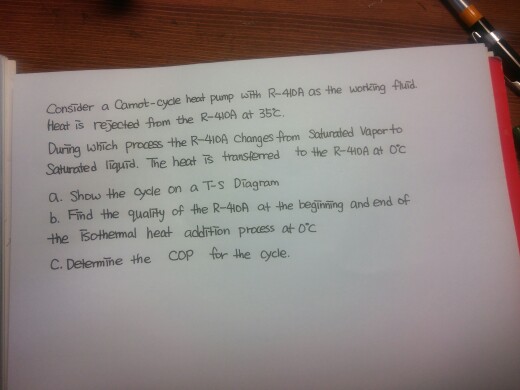 Consider a Carnot-cycle heat pump with R-410A as the working fluid.
Heat is rejected from the R-410A at 35°C.
During which process the R-410A changes from Saturated Vapor to
Saturated liquid. The heat is transferred to the R-410A at 0°C
a. Show the cycle on a T-S Diagram
b. Find the quality of the R-410A at the beginning and end of
the isothermal heat addition process at 0°C
C. Determine the COP for the cycle.